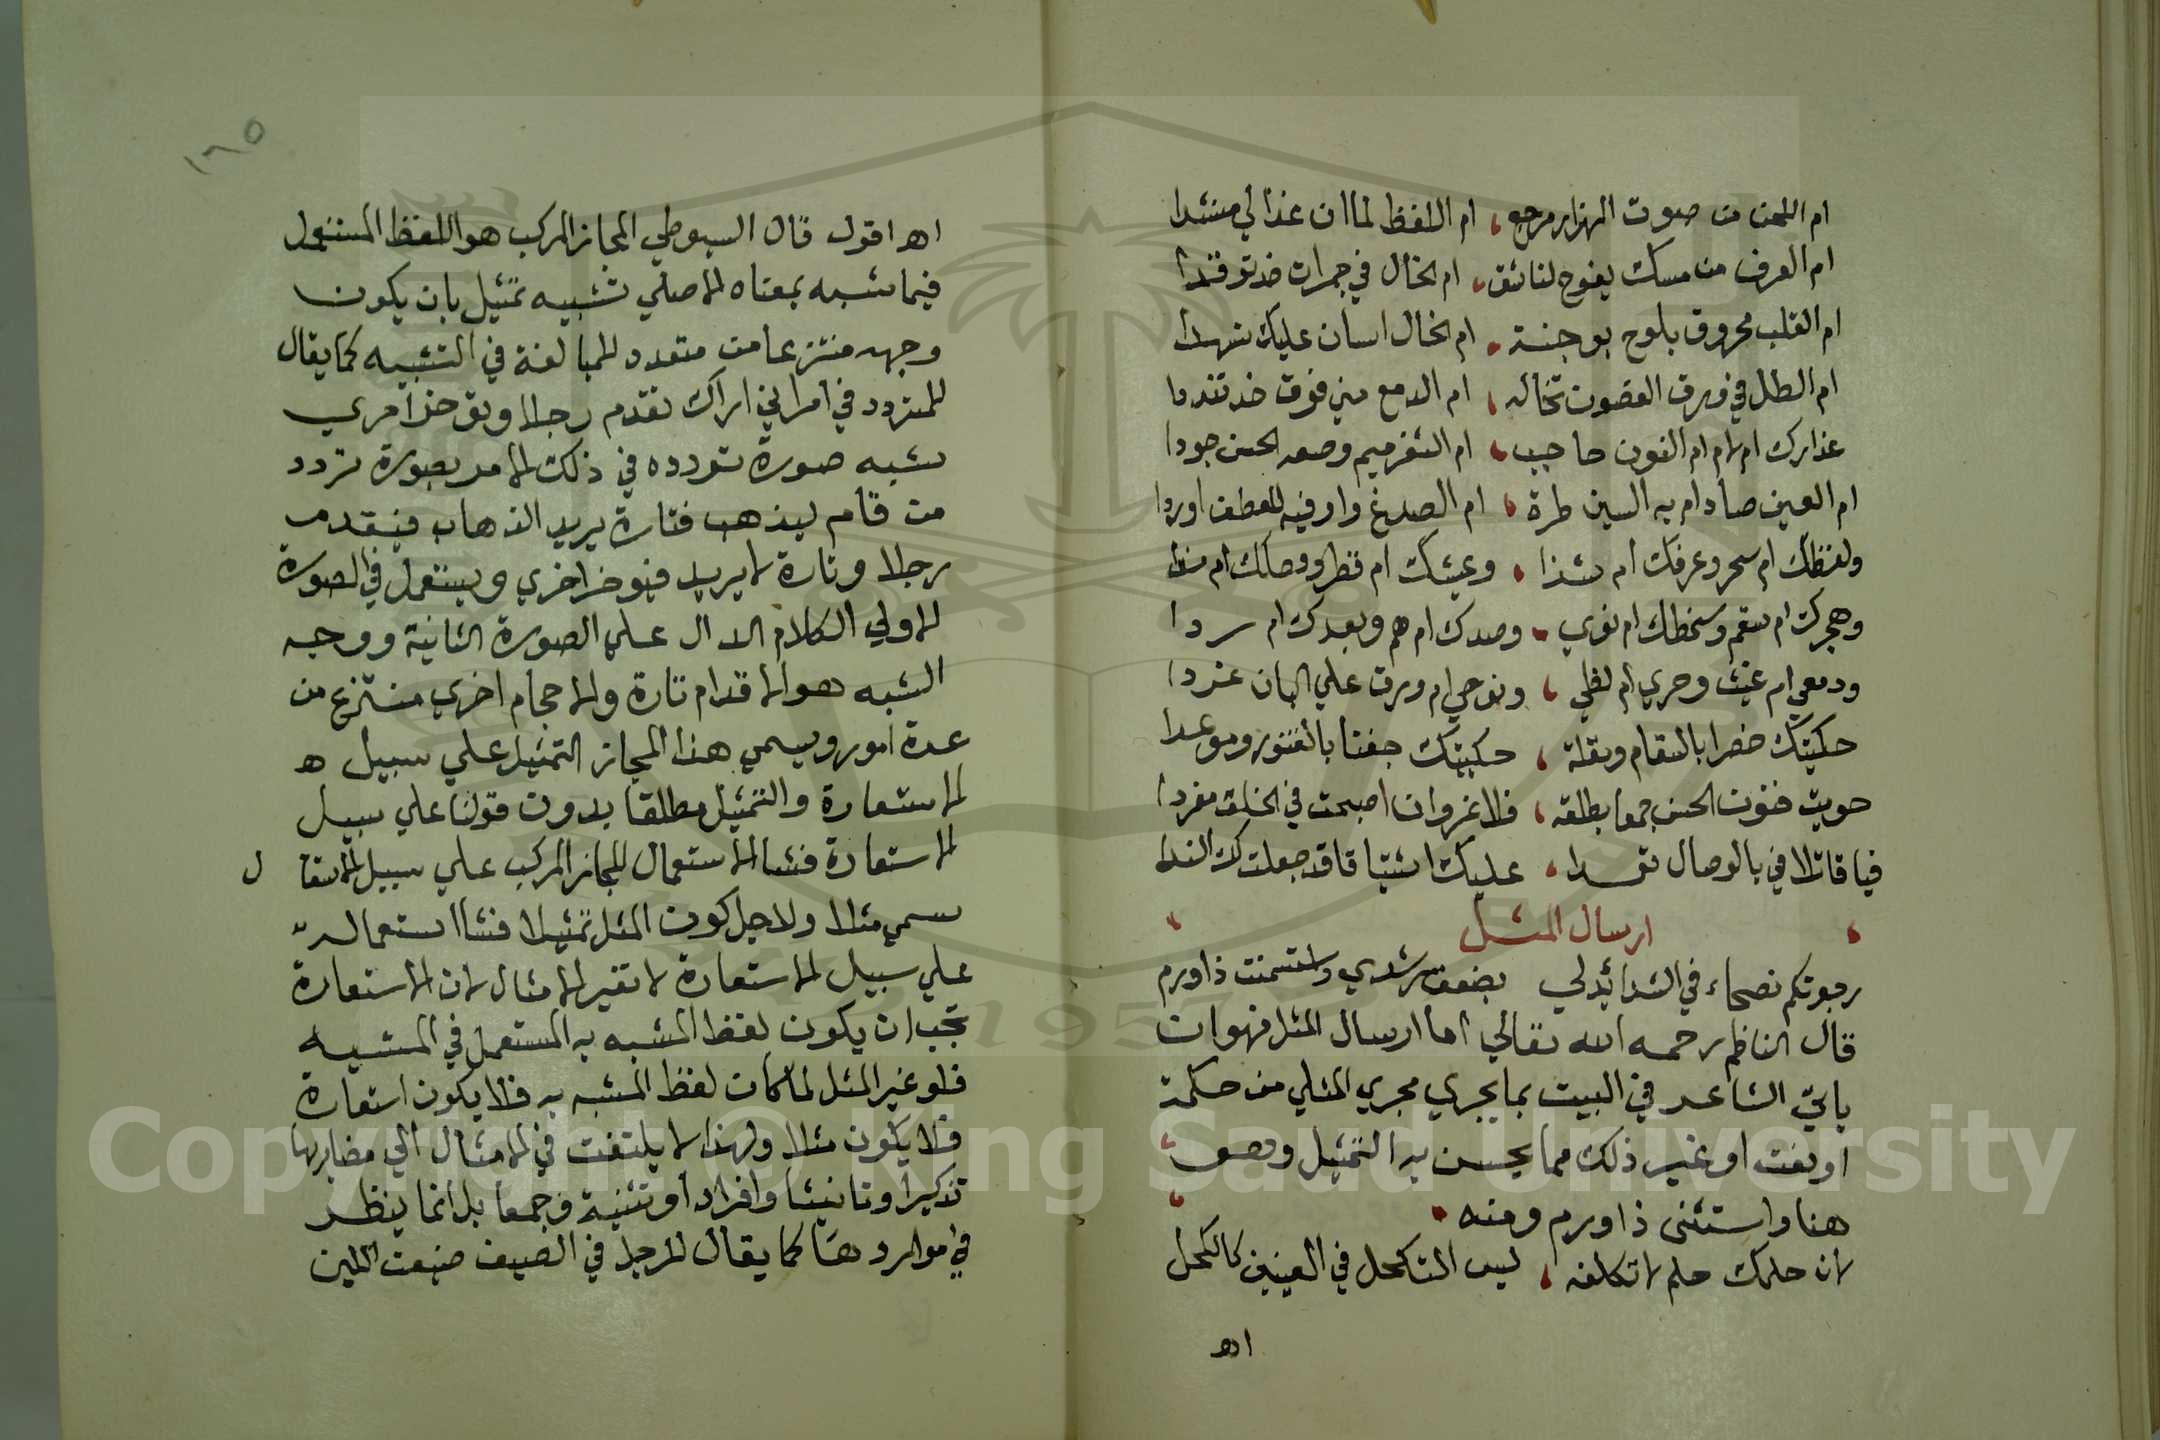 ام اللحن من صوت الهزار مرجع ، ام اللفظ لما ان غدا لي منشدا
ام العرف من مسك يفوح لناشق ، ام الخال في جمرات خد توقدا
ام القلب محروق يلوح بوجنة ، ام الخال انسان عليك تشهدا
ام الطل في ورق الغصون تخاله ، ام الدمع مني فوق خد تندما
عذارك ام لام ام النون حاجب ، ام الثغر ميم وصفه الحسن جودا
ام العين صاد ام به السين طرة ، ام الصدغ واو فيه للعطف اوردا
ولفظك ام سحر وعرفك ام شذا ، وعيشك ام قطر ووصلك ام
وهجرك ام سقم وسخطك ام نوي ، وصدك ام هم وبعدك ام ردا
ودمعي ام غيث وحري ام لظي ، ونوحي ام ورق علي البان غردا
حكيتك خصرا بالسقام ومقلة ، حكيتك جفنا بالفتور وموعدا
حويت فنون الحسن جمعا بطلعة ، فلا غرو ان اصبحت في الخلق مفردا
فيا قاتلا في بالوصال تعمدا ، عليك اشتياقا قد جعلت لك الندا
ارسال المثل
رجوتكم نصحاء في الشدائد لي بضعف رشدي واستسمنت ذا ورم
قال الناظم رحمه الله تعالي اما ارسال المثل فهو ان
ياتي الشاعر في البيت بما يجري مجري المثلي من حكمة
او نعت او غير ذلك مما يحسن به التمثيل وهو
هنا واستثنى ذا ورم ومنه
لان حلمك حلم لا تكلفه ، ليس التكحل في العينين كالكحل
اهـ
١٦٥
اهـ اقول قال السيوطي المجاز المركب هو اللفظ المستعمل
فيما شبه بمعناه الاصلي تشبيه تمثيل بان يكون
وجهه منتزعا من متعدد للمبالغة في التشبيه كما يقال
للمتردد في امر اني اراك تقدم رجلا وتوخر اخري
شبه صورة تردده في ذلك الامر بصورة تردد
من قام ليذهب فتارة يريد الذهاب فيقدم
رجلا وتارة لا يريد فيوخر اخري ويستعمل في الصورة
الاولي الكلام الدال علي الصورة الثانية ووجه
الشبه هو الاقدام تارة والاحجام اخري منتزع من
عدة امور ويسمي هذا المجاز التمثيل علي سبيل ه
الاستعارة والتمثيل مطلقا بدون قولنا علي سبيل
الاستعارة فشا الاستعمال للمجاز المركب علي سبيل الاستعا ل
سمي مثلا ولاجل كون المثل تمثيلا فشا استعماله
علي سبيل الاستعارة لا تغير الامثال لان الاستعارة
يجب ان يكون لفظ المشبه به المستعمل في المشبه
فلو غير المثل لما كان لفظ المشبه به فلا يكون استعارة
فلا يكون مثلا ولهذا لا يلتفت في الامثال الي مضاربها
تذكيرا وتانيثا وافرادا وتثنية وجمعا بل انما ينظر
في مواردها كما يقال للرجل في الصيف ضيعت اللبن
Copyright © King Saud University
1957